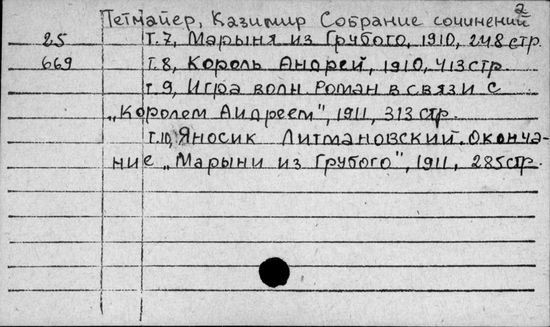 2
Тетмайер, Казимир Собрание сочинений
25 Т.7, Марыня из Грубого, 1910, 248 стр.
669 Т.8, Король Андрей, 1910, 413 стр.
т.9, Игра волн Роман в связи с
„Королем Андреем", 1911, 313 стр.
Т.10, Яносик Литмановский. Оконча-
ние „Марыни из Грубого", 1911, 285 стр.